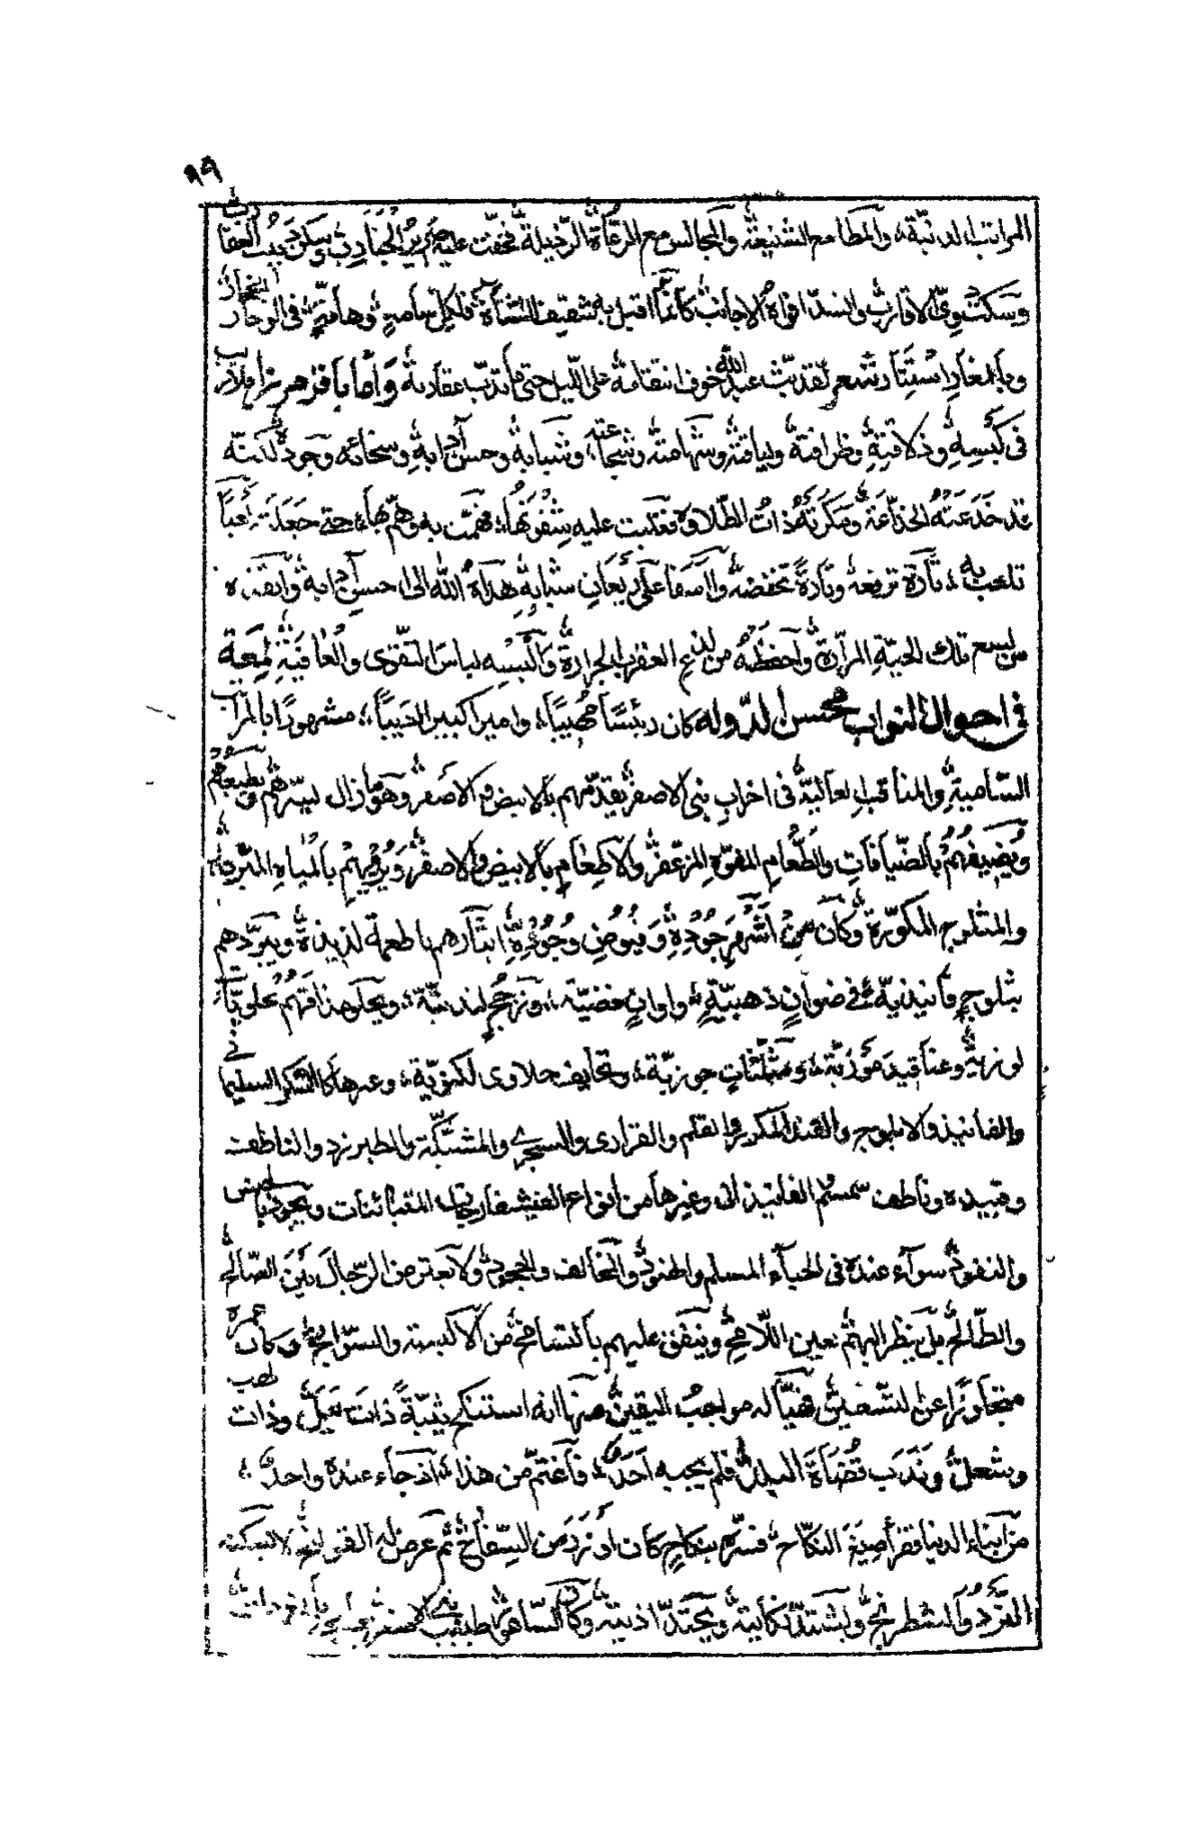 ٩٩
المراتب الدنيّة، والمطامع الشنيعة والمجالس مع المرءاة الرذيلة فخفت عليه صرير الجنادب وسكن دبيب العقارب
وسكت دويّ الاقارب وانسدّ افواه الاجانب كأنما اقبل به شقيق النشأة فلكل سامية وهامة في الوجار
وبالمغار استتار شعر لقد بث عبد الله خوف انتقامه على الليل حتى ما تدب عقاربه واما باقر هر مرزا
في كيسه وذلاقته وظرافته ولياقته وشهامته وشجاعته، وشبابه وحسن آدابه وسخائه وجوده لكنّه
قد خدعته الخدّاعة ومكرته ذات الطلاوة فغلبت عليه شقوتها، فهمّت به وهمّ بها، حتى جعلته
تلعب به، تارة ترفعه وتارة تخفضه وآأسفا على ريعان شبابه هداه الله الى احسن آدابه وانقذه
من لسع تلك الحيّة المرّارة واحفظه من لدغ العقرب الجرارة وألبسه لباس التقوى والعافية لمعة
في احوال النواب محسن الدوله كان رئيسًا مهيبًا، واميرا كبيرا لبيبًا، مشهورًا بالمراتب
السامية والمناقب العالية في اخراب بني الاصفر يقدّمهم بالابيض والاصفر وهو ما زال يسرّهم ويطيعهم
ويضيفهم بالضيافات والطعام المفوّه المزعفر والاطعام بالابيض والاصفر ويرويهم بالمياه المبردة
والمثلوج المكوّرة وكان من اشهر جوده وفيوض وجوده ايثارهم باطعمة لذيذة ويبرّدهم
بثلوج فانيذيّة في ضوان ذهبيّة، واوان فضيّة، ونرجح لذيذة، ويحلو مذاقهم بحلويّات
لوزية وعناقيد موزية، ومثلّثات جوزيّة، وتحايف حلاوى لكنويّة، وغيرها كالسكر السليماني
والفانيذ والابلوج والقند المكرر والقلم والقرارى والسجزي والمشبكة والطبرزد والناطف
وقبيده وناطف سمسم الفانيذ الى وغيرها من انواع الفيشفارجات المتباينات ويجود بالبيض
والنفوذ سوآء عنده في الحبآء المسلم والهنود والمخالف والجحود ولا يميز من الرجال بين الصالح
والطالح بل ينظر اليهم بعين اللامح وينفق عليهم بالتسامح من الاكسية والسوابح وكان عمره
متجاوزًا عن السبعين فهيّأ له مواجب اليقين منها انه استنكح ثيبة ذات بعل وذات لهب
وشعل وندب قضاة البلد فلم يجبه احد، فاغتم من هذا، اذ جاء عنده واحد،
من ابناء الدنيا فقرأ صيغة النكاح فسرّه بنكاح كان ادون من السفاح ثم عرض له القولنج لا تسكنه
النرد والشطرنج واشتدّ نكايته ويحتدّ اذيته وكان الساهر طبيب بني الاصفر